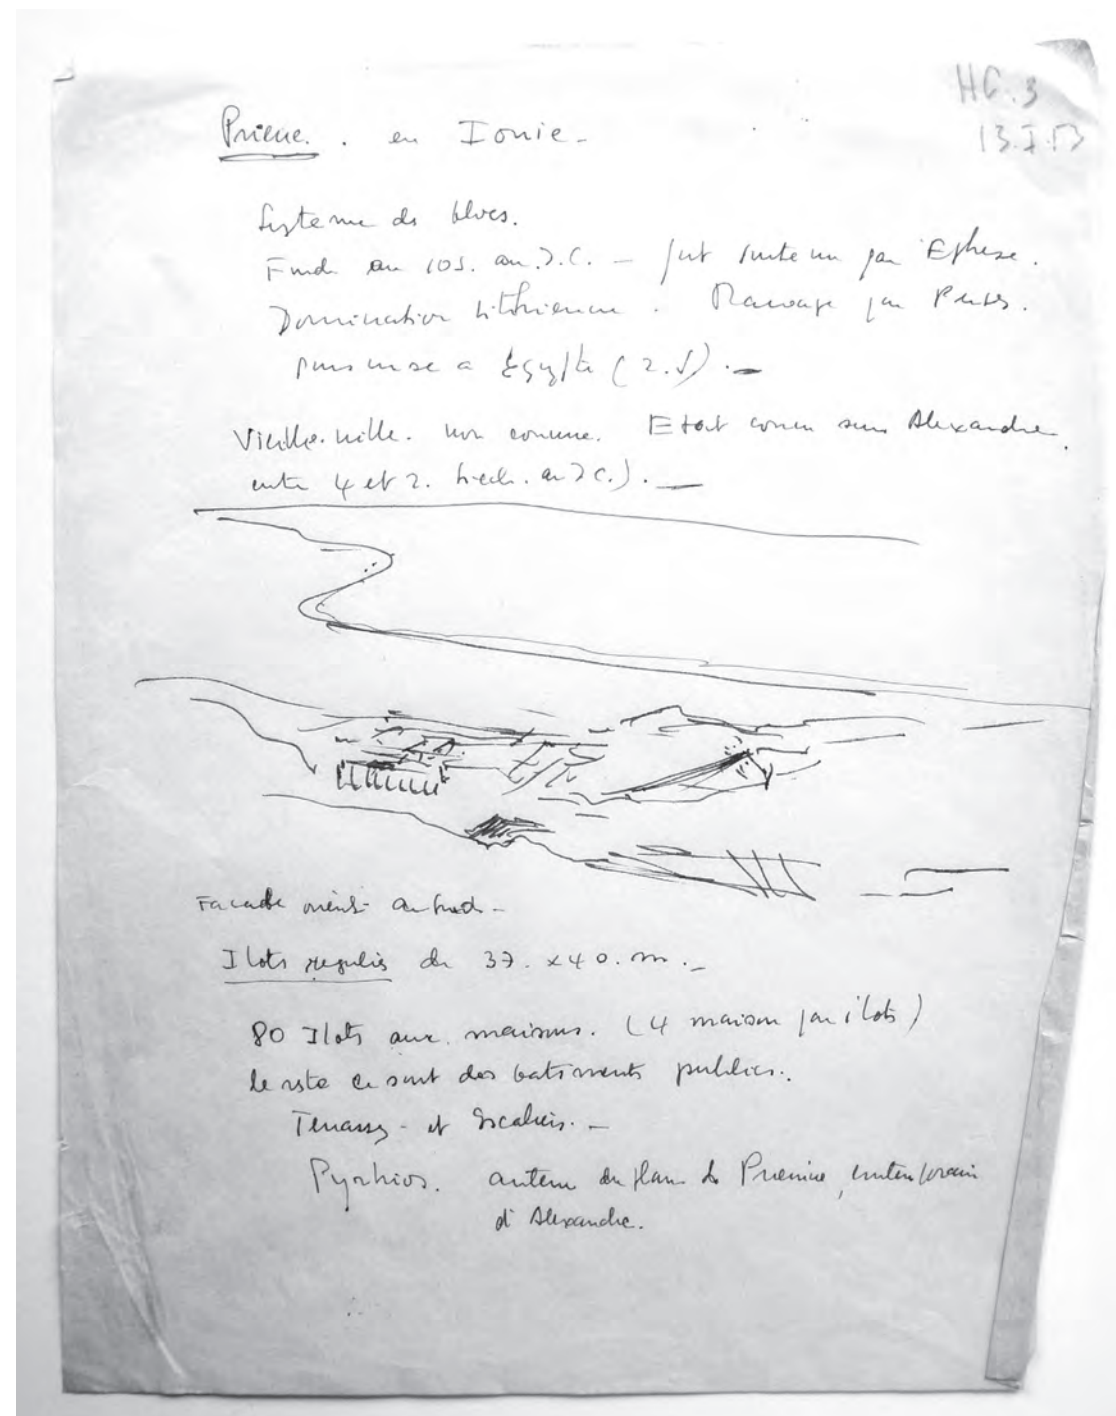 HC.3
13.I.53
Priene. . en Ionie -
Systeme de blocs.
Fond. au 10s. av. J.C. - fut soutenu par Ephese.
Domination . Ravage par Perses.
puis a Egypte (2.s) . -
Vieille ville. non connue. Etat connu sous Alexandre.
entre 4 et 2. siecl. av J C.) . -
Facade orient. au sud -
Ilots regulis de 37. x 40. m . -
80 Ilots aux maisons. (4 maison par ilots)
le reste ce sont des batiments publics..
Terrasses - et Escaliers. -
Pythios. auteur du plan de Priene, contemporain
d'Alexandre.